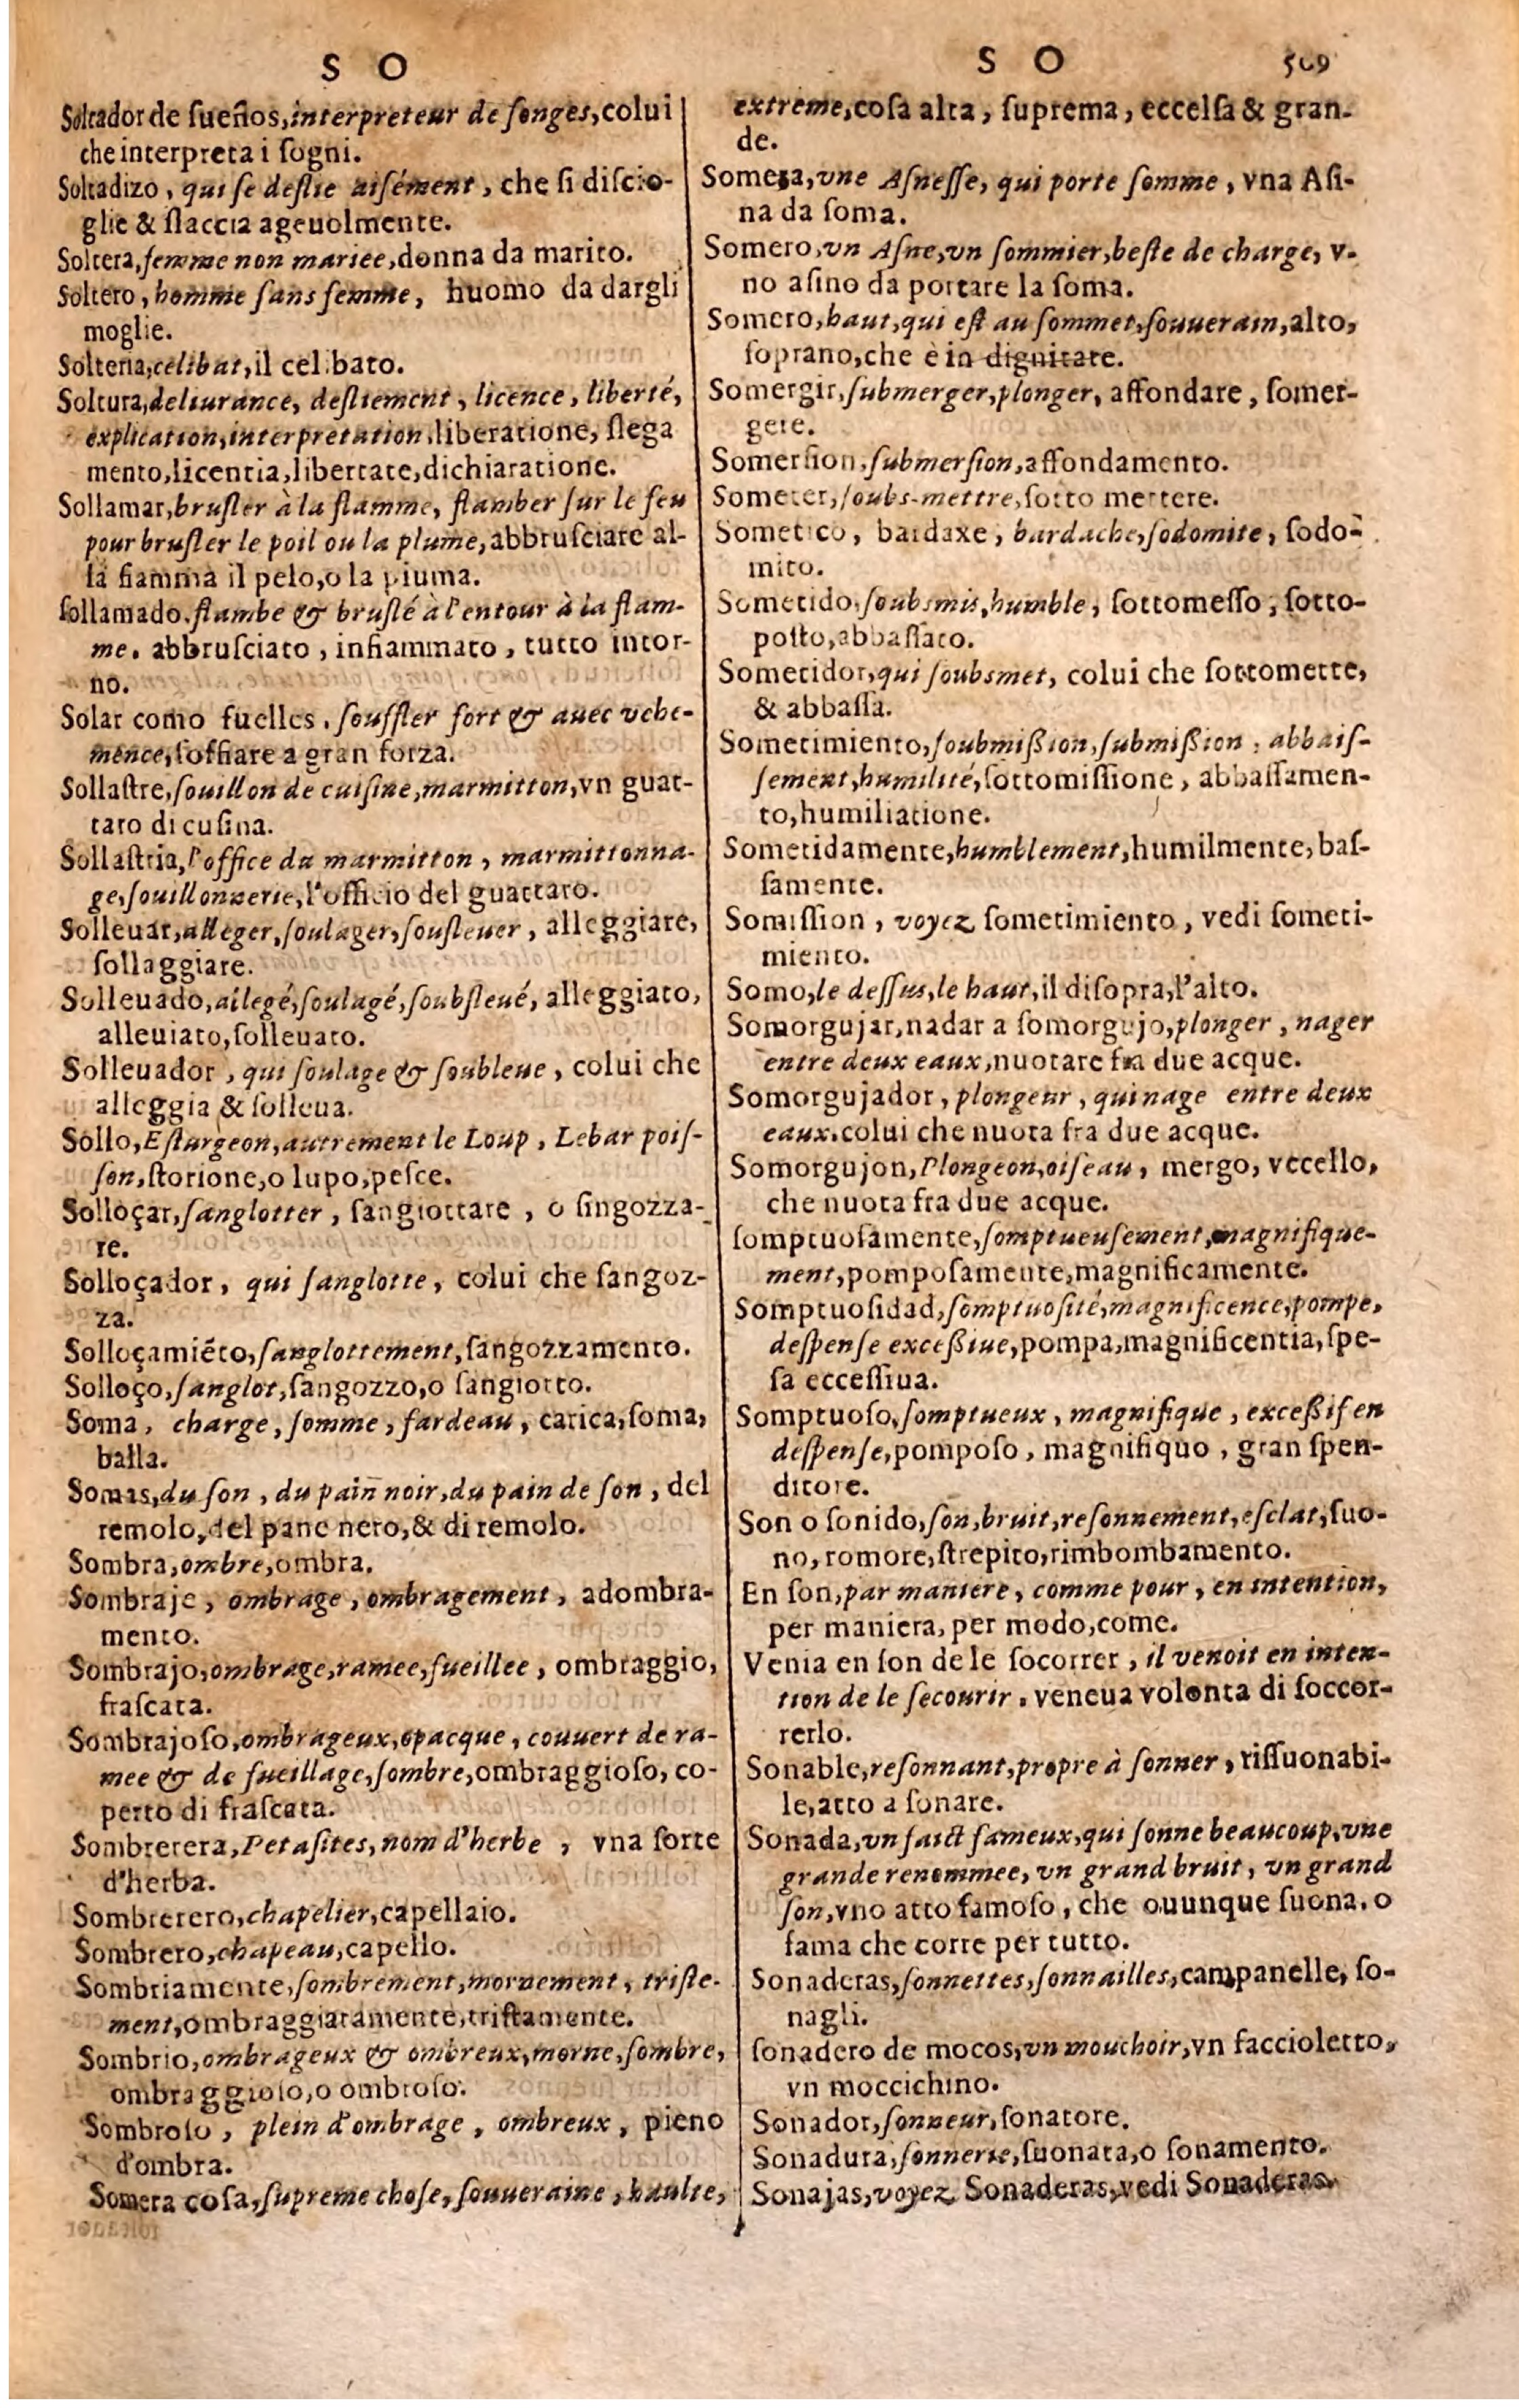 S O
Soltador de sueños, interpreteur de songes, colui
che interpreta i sogni.
Soltadizo, qui se deslie aisément, che si discio-
glie & slaccia ageuolmente.
Soltera, femme non mariee, donna da marito.
Soltero, homme sans femme, huomo da dargli
moglie.
Solteria, celibat, il celibato.
Soltura, deliurance, desliement, licence, liberté,
explication, interpretation, liberatione, slega
mento, licentia, libertate, dichiaratione.
Sollamar, brusler à la flamme, flamber sur le feu
pour brusler le poil ou la plume, abbrusciare al-
la fiamma il pelo, o la piuma.
sollamado, flambe & bruslé à l'entour à la flam-
me. abbrusciato, infiammato, tutto intor-
no.
Solar como fuelles, souffler fort & auec vehe-
mence, soffiare a gran forza.
Sollastre, souillon de cuisine, marmitton, vn guat-
taro di cusina.
Sollastria, l'office du marmitton, marmittonna-
ge, souillonnerie, l'officio del guattaro.
Solleuar, alleger, soulager, sousleuer, alleggiare,
sollaggiare.
Solleuado, allegé, soulagé, soubsleué, alleggiato,
alleuiato, solleuato.
Solleuador, qui soulage & soubleue, colui che
alleggia & solleua.
Sollo, Esturgeon, autrement le Loup, Lebar pois-
son, storione, o lupo, pesce.
Solloçar, sanglotter, sangiottare, o singozza-
re.
Solloçador, qui sanglotte, colui che sangoz-
za.
Solloçamiẽto, sanglottement, sangozzamento.
Solloço, sanglot, sangozzo, o sangiotto.
Soma, charge, somme, fardeau, carica, soma,
balla.
Somas, du son, du pain noir, du pain de son, del
remolo, del pane nero, & di remolo.
Sombra, ombre, ombra.
Sombraje, ombrage, ombragement, adombra-
mento.
Sombrajo, ombrage, ramee, fueillee, ombraggio,
frascata.
Sombrajoso, ombrageux, opacque, couuert de ra-
mee & de fueillage, sombre, ombraggioso, co-
perto di frascata.
Sombrerera, Petasites, nom d'herbe, vna sorte
d'herba.
Sombrerero, chapelier, capellaio.
Sombrero, chapeau, capello.
Sombriamente, sombrement, mornement, triste-
ment, ombraggiatamente, tristamente.
Sombrio, ombrageux & ombreux, morne, sombre,
ombraggioso, o ombroso.
Sombroso, plein d'ombrage, ombreux, pieno
d'ombra.
Somera cosa, supreme chose, souueraine, haulte,
S O 509
extreme, cosa alta, suprema, eccelsa & gran-
de.
Somera, vne Asnesse, qui porte somme, vna Asi-
na da soma.
Somero, vn Asne, vn sommier, beste de charge, v-
no asino da portare la soma.
Somero, haut, qui est au sommet, souuerain, alto,
soprano, che è in dignitate.
Somergir, submerger, plonger, affondare, somer-
gere.
Somersion, submersion, affondamento.
Someter, soubs-mettre, sotto mettere.
Sometico, bardaxe, bardache, sodomite, sodo-
mito.
Sometido, soubsmis, humble, sottomesso, sotto-
posto, abbassato.
Sometidor, qui soubsmet, colui che sottomette,
& abbassa.
Sometimiento, soubmißion, submißion, abbais-
sement, humilité, sottomissione, abbassamen-
to, humiliatione.
Sometidamente, humblement, humilmente, bas-
samente.
Somission, voyez sometimiento, vedi someti-
miento.
Somo, le dessus, le haut, il disopra, l'alto.
Somorgujar, nadar a somorgujo, plonger, nager
entre deux eaux, nuotare fra due acque.
Somorgujador, plongeur, qui nage entre deux
eaux. colui che nuota fra due acque.
Somorgujon, Plongeon, oiseau, mergo, vccello,
che nuota fra due acque.
somptuosamente, somptueusement, magnifique-
ment, pomposamente, magnificamente.
Somptuosidad, somptuosité, magnificence, pompe,
despense exceßiue, pompa, magnificentia, spe-
sa eccessiua.
Somptuoso, somptueux, magnifique, exceßif en
despense, pomposo, magnifiquo, gran spen-
ditore.
Son o sonido, son, bruit, resonnement, esclat, suo-
no, romore, strepito, rimbombamento.
En son, par maniere, comme pour, en intention,
per maniera, per modo, come.
Venia en son de le socorrer, il venoit en inten-
tion de le secourir, veneua volonta di soccor-
rerlo.
Sonable, resonnant, propre à sonner, rissuonabi-
le, atto a sonare.
Sonada, vn faict fameux, qui sonne beaucoup, vne
grande renommee, vn grand bruit, vn grand
son, vno atto famoso, che ouunque suona, o
fama che corre per tutto.
Sonaderas, sonnettes, sonnailles, campanelle, so-
nagli.
sonadero de mocos, vn mouchoir, vn faccioletto,
vn moccichino.
Sonador, sonneur, sonatore.
Sonadura, sonnerie, suonata, o sonamento.
Sonajas, voyez Sonaderas, vedi Sonaderas.